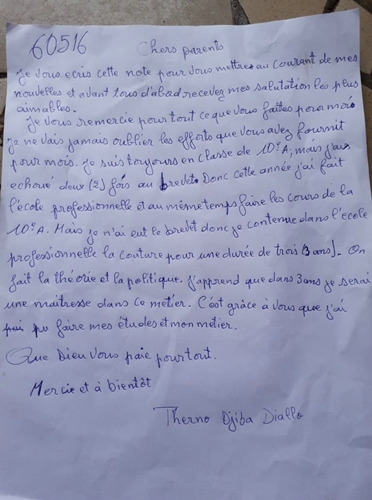 60516
Chers parents
Je vous ecris cette note pour vous mettre au courant de mes
nouvelles et avant tous d'abord recevez mes salutation les plus
aimables.
Je vous remercie pour tout ce que vous faites pour mois
Je ne vais jamais oublier les efforts que vous avez fournit
pour mois. Je suis toujours en classe de 10e A, mais j'ai
echoué deux (2) fois au brevet. Donc cette année j'ai fait
l'école professionnelle et au même temps faire les cours de la
10e A. Mais je n'ai eut le brevet donc je contenue dans l'école
professionnelle la couture pour une durée de trois (3 ans). On
fait la théorie et la politique. J'apprend que dans 3 ans je serai
une maitresse dans ce métier. C'est grâce à vous que j'ai
pu faire mes études et mon métier.
Que Dieu vous paie pour tout.
Mercie et à bientôt
Therno Djiba Diallo